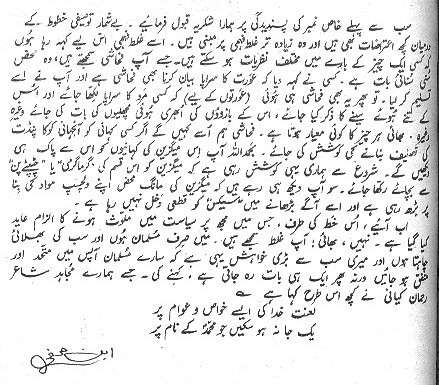 سب سے پہلے خاص نمبر کی پسندیدگی پر ہمارا شکریہ قبول فرمائیے۔ بے شمار توصیفی خطوط کے
درمیان کچھ اعتراضات بھی ہیں اور وہ زیادہ تر غلط فہمی پر مبنی ہیں۔ اسے غلط فہمی اس لیے کہہ رہا ہوں
کہ کسی ایک چیز کے بارے میں مختلف نظریات ہو سکتے ہیں۔ جسے آپ فحاشی سمجھتے ہیں، وہ محض
سنی سنائی بات ہے۔ کسی نے کہہ دیا کہ عورت کا سراپا بیان کرنا بھی فحاشی ہے اور آپ نے اسے
تسلیم کر لیا۔ تو پھر یہ بھی فحاشی ہی ہوئی (عورتوں کے لیے) کہ کسی مرد کا سراپا لکھا جائے اور اس
کے تنے ہوئے سینے کا ذکر کیا جائے، اس کے بازوؤں کی ابھری ہوئی مچھلیوں کی بات کی جائے وغیرہ
وغیرہ۔ بھائی ہر چیز کا کوئی معیار ہوتا ہے۔ فحاشی ہم اسے کہیں گے اگر کسی کہانی کو آنجہانی کوکا پنڈت
کی تصنیف بنانے کی کوشش کی جائے۔ بحمداللہ آپ اس میگزین کی کہانیوں کو اس سے پاک ہی
دیکھیں گے۔ شروع سے ہماری یہی کوشش رہی ہے کہ میگزین کو اس قسم کی "گرماگرمی" یا
سے بچائے رکھا جائے۔ سو آپ دیکھ ہی رہے ہیں کہ میگزین کی مانگ محض اپنے دلچسپ مواد کی بنا
پر بڑھ رہی ہے اور اسے آگے بڑھانے میں "سیکس" کو قطعی دخل نہیں رہا ہے۔
اب آئیے، اُس خط کی طرف، جس میں مجھ پر سیاست میں ملوث ہونے کا الزام عاید
کیا گیا ہے۔ نہیں، بھائی! آپ غلط سمجھے ہیں۔ میں صرف مسلمان ہوں اور سب کی بھلائی
چاہتا ہوں اور میری سب سے بڑی خواہش یہی ہے کہ سارے مسلمان آپس میں متحد اور
متفق ہو جائیں ورنہ پھر ایک ہی بات رہ جاتی ہے، کہنے کی۔ جسے ہمارے مجاہد شاعر
رحمان کیانی نے کچھ اس طرح کہا ہے ؎
لعنت خدا کی ایسے خواص و عوام پر
یک جا نہ ہو سکیں جو محمدؐ کے نام پر
ابن صفی